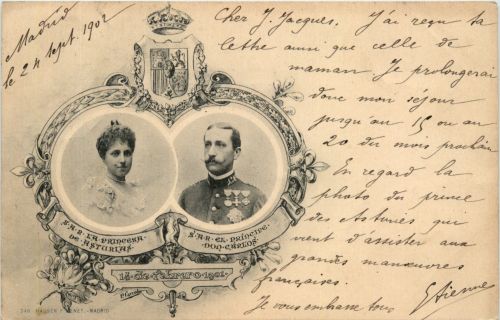 Madrid
le 24 sept. 1902
Cher J. Jacques. J'ai reçu ta
lettre ainsi que celle de
maman Je prolongerai
donc mon séjour
jusqu'au 15 ou au
20 du mois prochain
En regard la
photo du prince
des Asturies qui
vient d'assister aux
grandes manœuvres
françaises.
Je vous embrasse tous
Etienne
S.A.R. LA PRINCESA
DE ASTURIAS
S.A.R. EL PRINCIPE
DON CARLOS
14 de Febrero 1901
HAUSER Y MENET.-MADRID